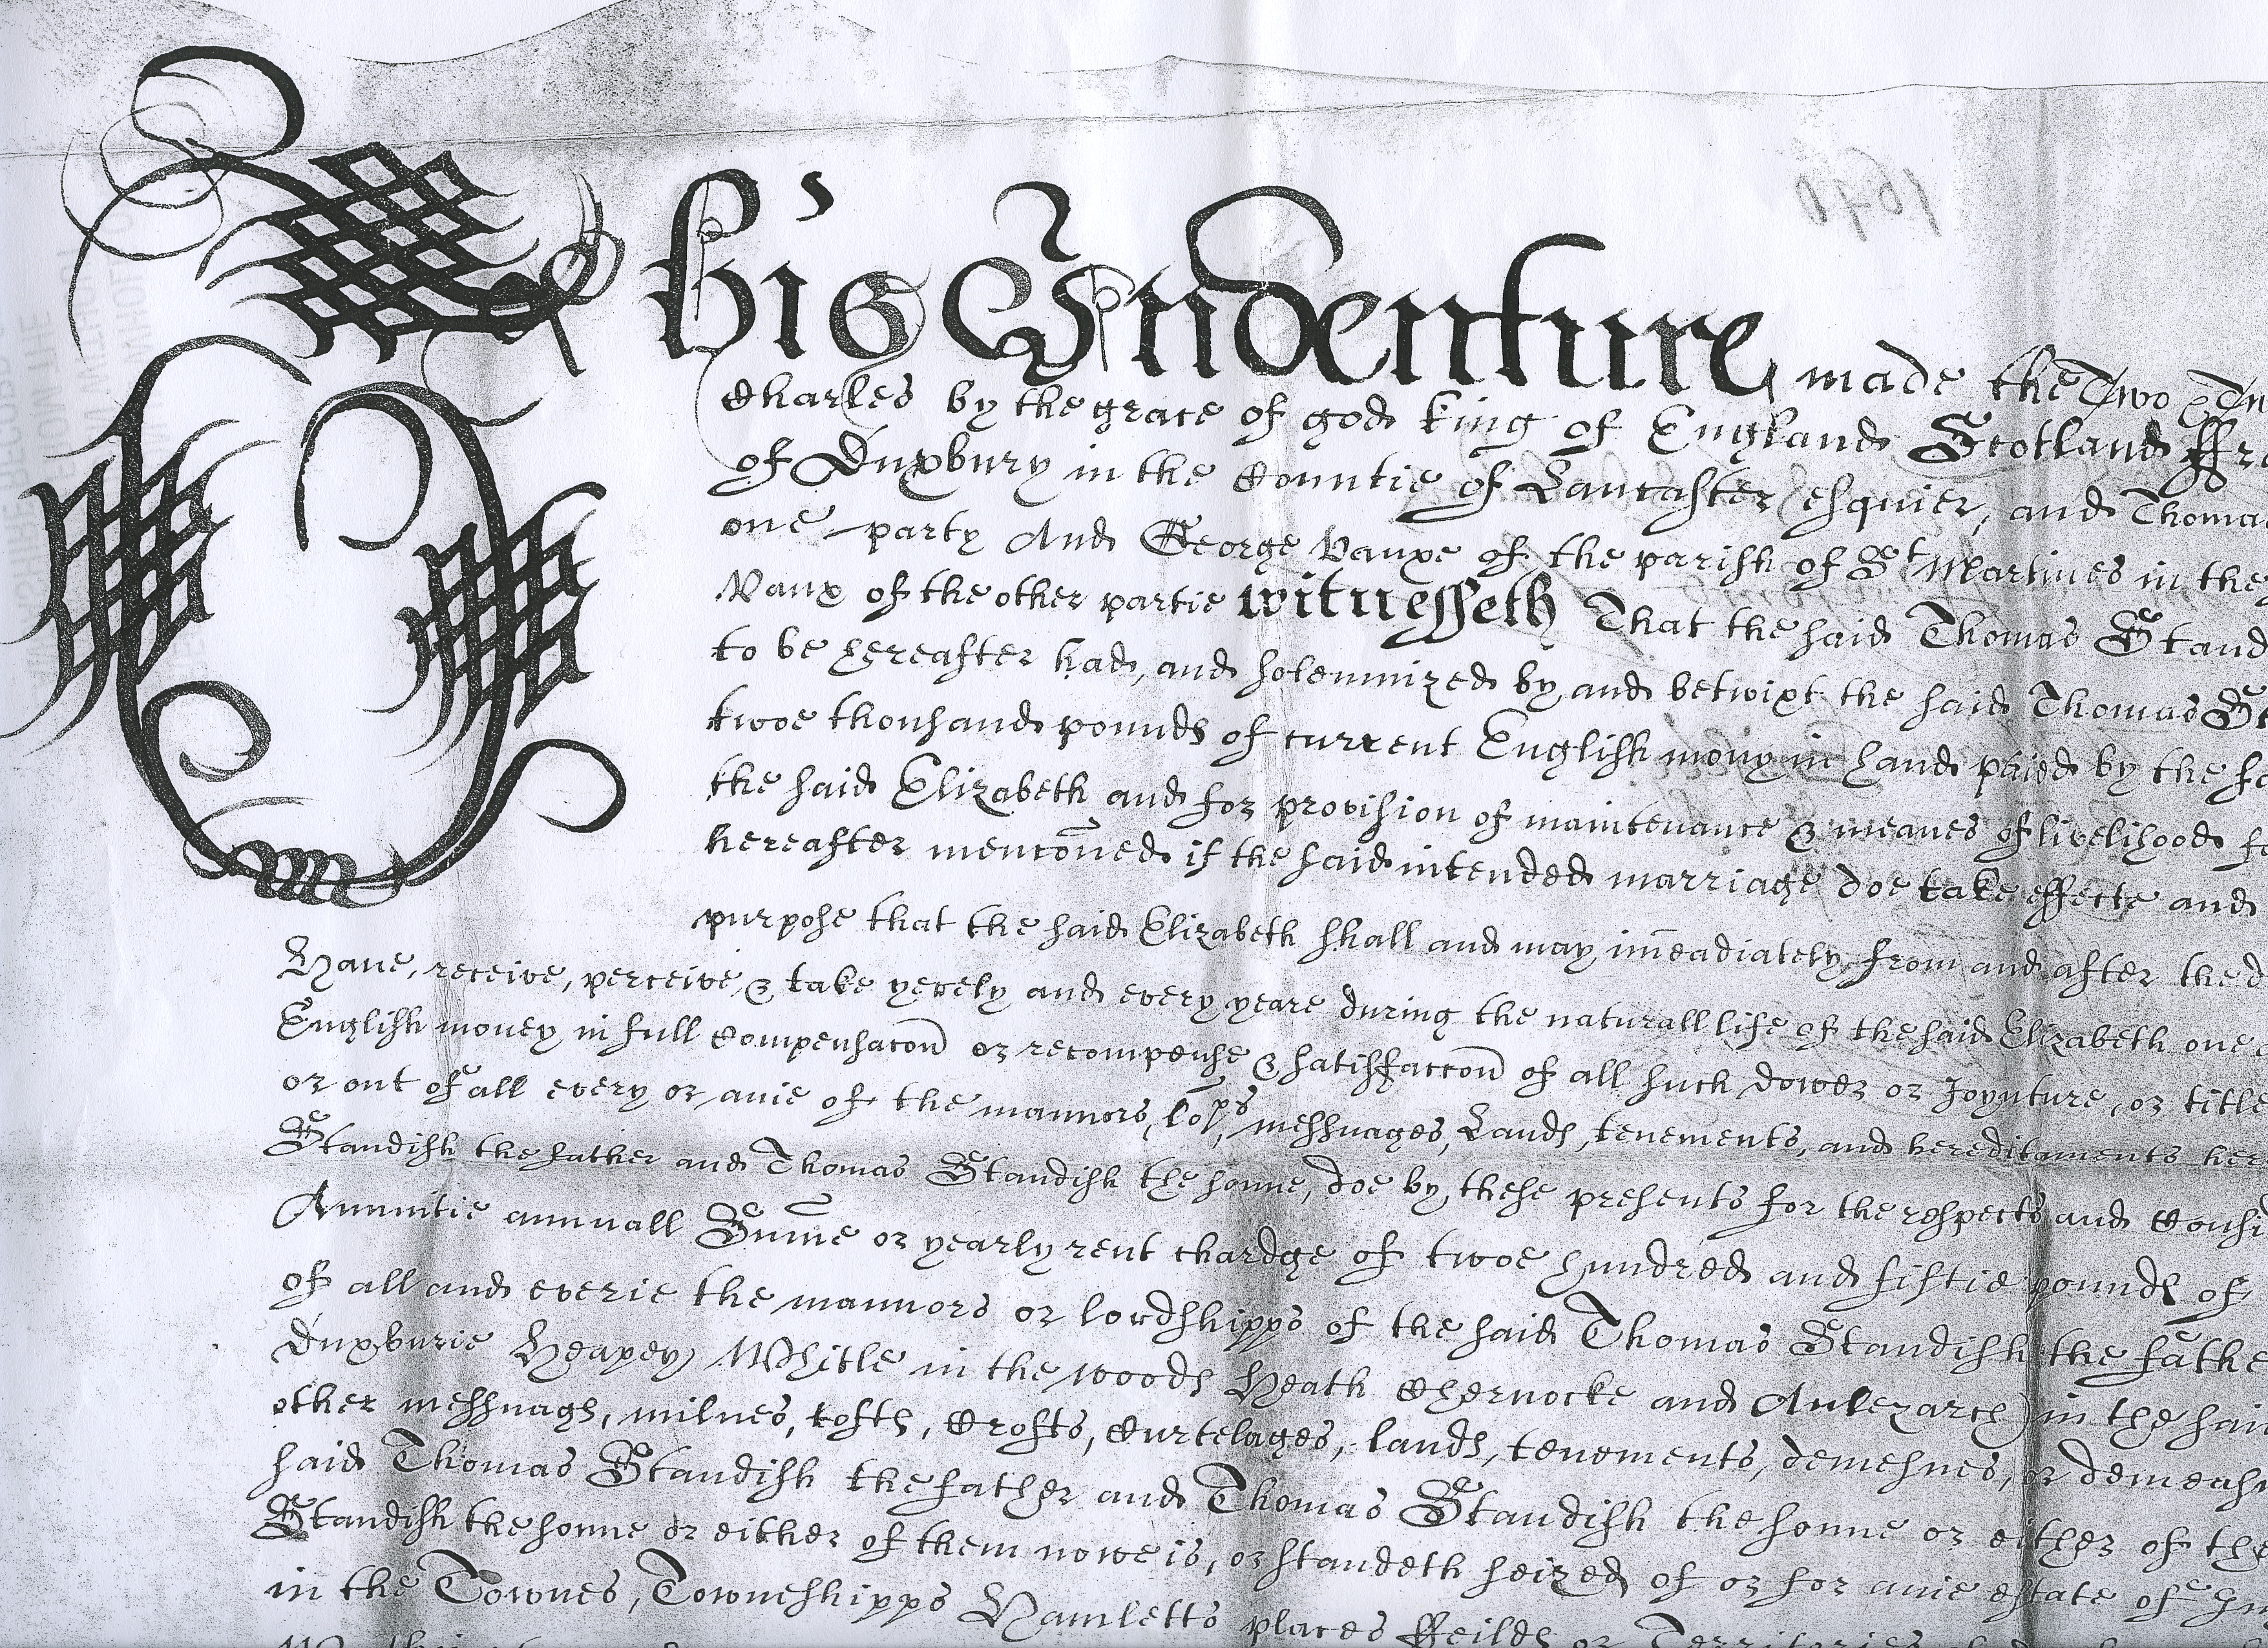 1640
This Indenture made the Two
Charles by the grace of god King of England Scotland ffra
of Duxbury in the Countie of Lancaster esquier, and Thoma
one party And George Vauxe of the parish of St Martines in the
Vaux of the other partie witnesseth That the said Thomas Stand
to be hereafter had, and solemnized by and betwixt the said Thomas St
twoe thousand pounds of current English mony in hand paied by the
the said Elizabeth and for provision of maintenance & meanes of livelihood
hereafter mencōned if the said intended marriage doe take effecte and
purpose that the said Elizabeth shall and may im̄eadiately from and after the d
Have, receive, perceive & take yerely and every yeare during the naturall life of the said Elizabeth one
English money in full Compensacon̄ or recompense & satisfaccon̄ of all such dower or Joynture, or title
or out of all every or anie of the mannors, messuages, Lands, tenements, and hereditaments her
Standish the father and Thomas Standish the sonne, doe by these presents for the respects and Consi
Annuitie annuall Sum̄e or yearly rent chardge of twoe hundred and fiftie pounds of
of all and everie the mannors or lordshipps of the said Thomas Standish the fathe
Duxburie Heapey Whitle in the woods Heath Chernocke and Anlezarch) in the sai
other messuags, milnes, tofts, Crofts, Curtelages, lands, tenements, demesnes, or demeasn
said Thomas Standish the father and Thomas Standish the sonne or either of the
Standish the sonne or either of them nowe is, or standeth seized of or for anie estate of
in the Townes, Towneshipps Hamletts places ffeilds or Territories